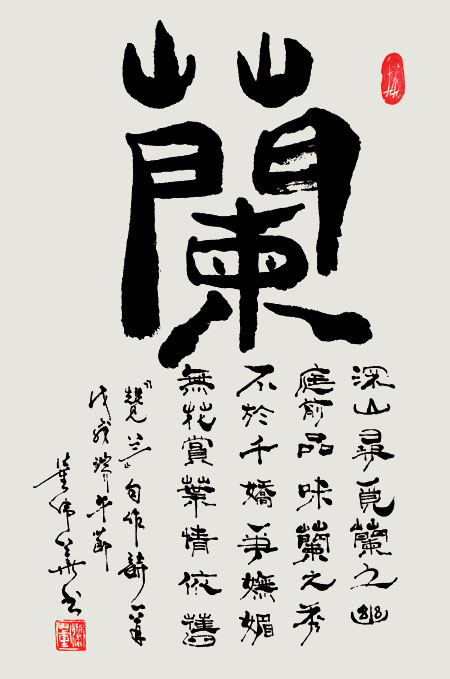 蘭
深山尋覓蘭之幽
庭前品味蘭之秀
不於千嬌爭嫵媚
無花賞葉情依舊
兰自作詩一首
戊戌端午節
董伟華书